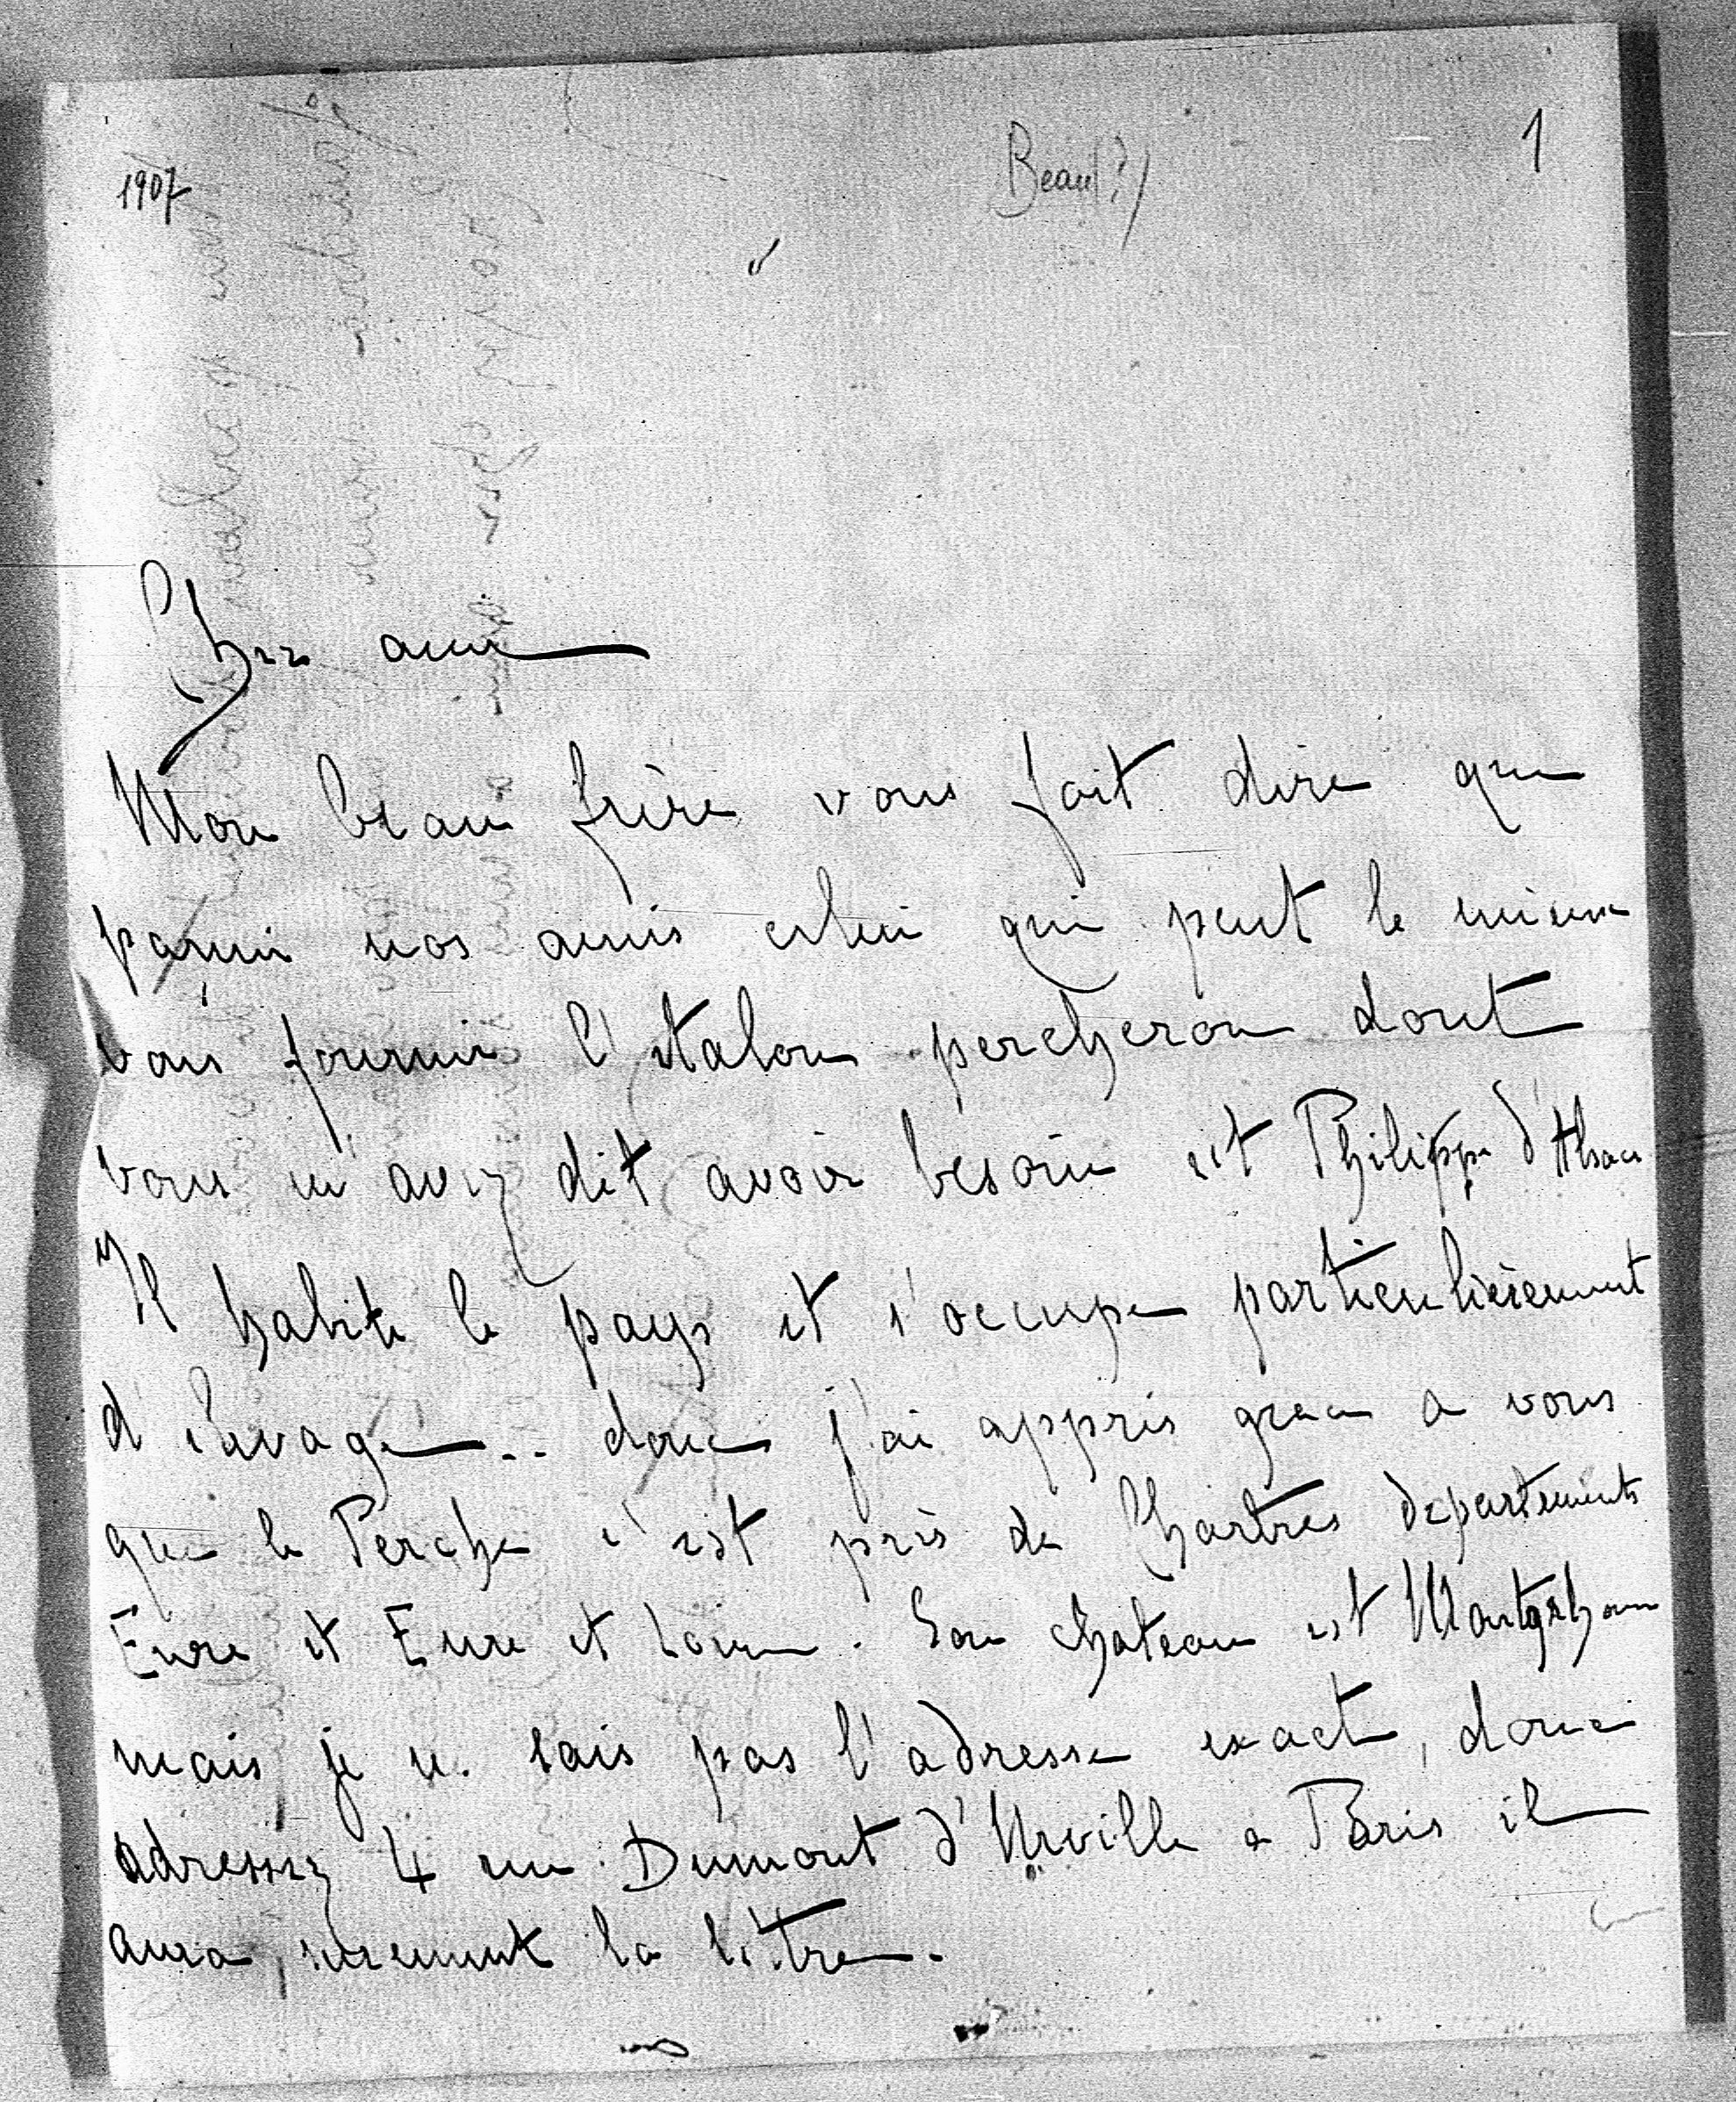 1907
1
Cher ami
Mon beau frère vous fait dire que
parmi nos amis celui qui peut le mieux
vous fournir l'étalon percheron dont
vous m'avez dit avoir besoin est Philippe d'Alsace
Il habite le pays et s'occupe particulièrement
d'élevage.. donc j'ai appris grace a vous
que le Perche c'est près de Chartres departements
Eure et Eure et Loire. Son chateau est
mais je ne sais pas l'adresse exacte, donc
adressez 4 rue Dumont d'Urville a Paris il
aura surement la lettre.